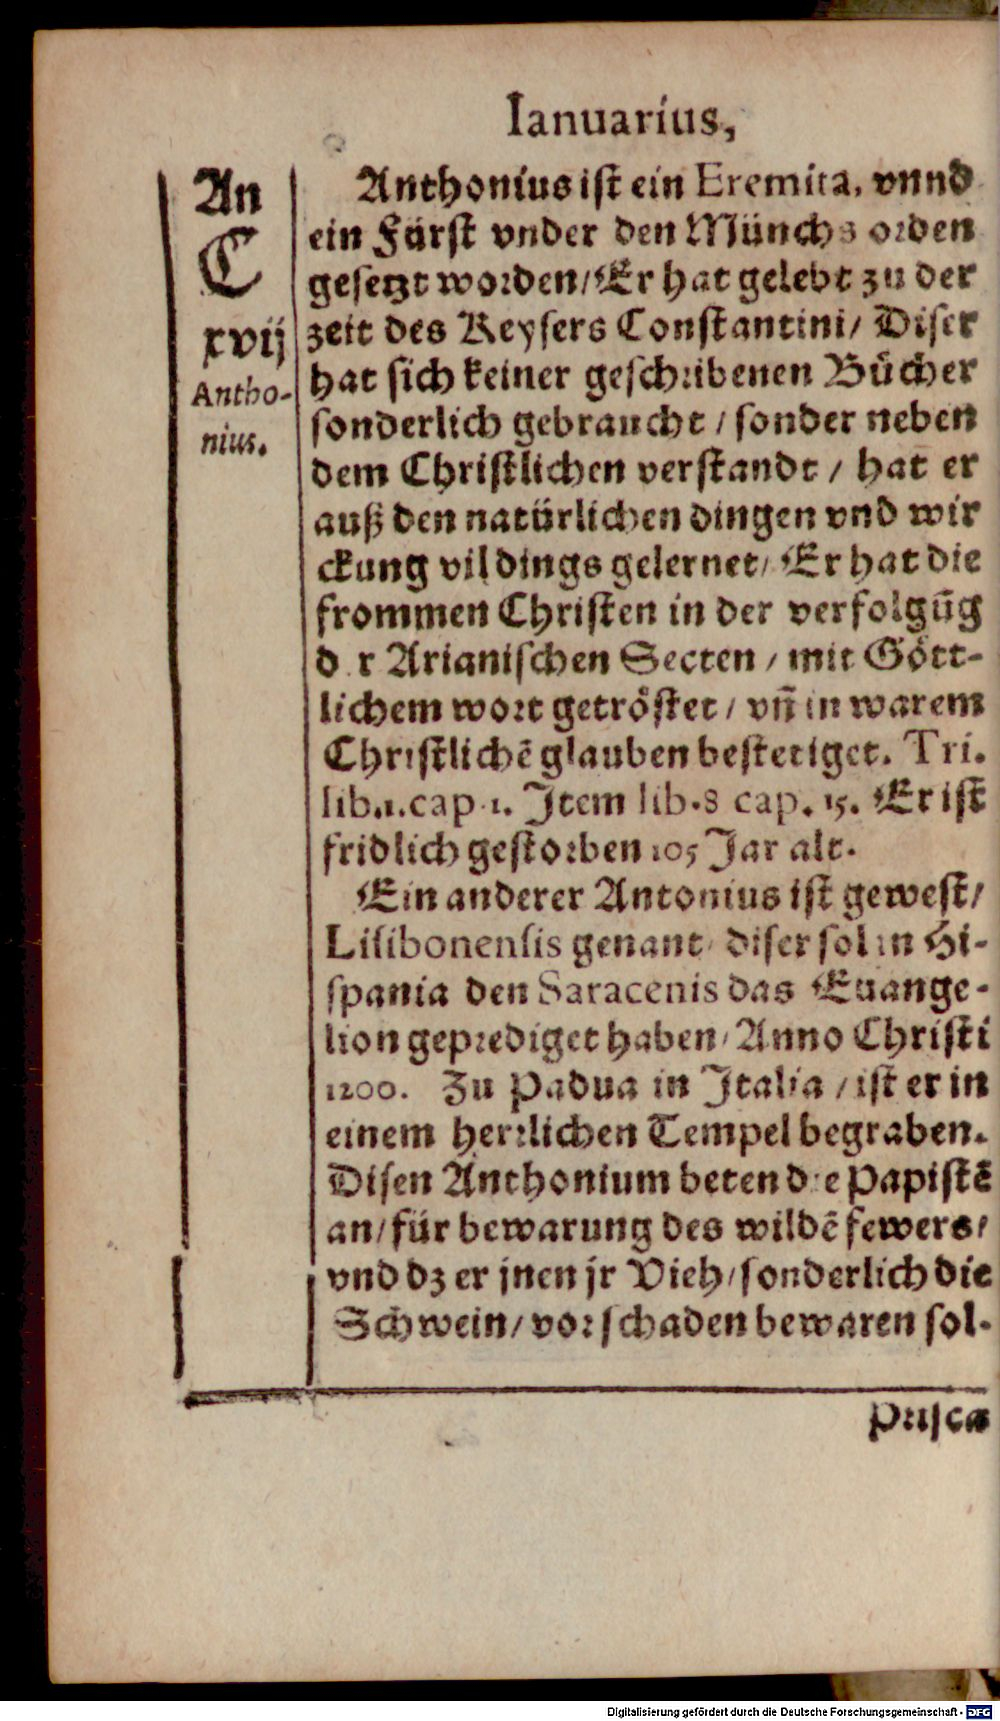 Ianuarius,
An
C
xvij
Antho-
nius.
Anthonius ist ein Eremita, vnnd
ein Fürst vnder den Münchs orden
gesetzt worden/ Er hat gelebt zu der
zeit des Keysers Constantini/ Diser
hat sich keiner geschribenen Bücher
sonderlich gebraucht / sonder neben
dem Christlichen verstandt / hat er
auß den natürlichen dingen vnd wir
ckung vil dings gelernet/ Er hat die
frommen Christen in der verfolgūg
d r Arianischen Secten / mit Gött-
lichem wort getröstet / vn̄ in warem
Christlichē glauben bestetiget. Tri.
lib.1.cap.1. Item lib.8 cap. 15. Er ist
fridlich gestorben 105 Jar alt.
Ein anderer Antonius ist gewest/
Lisibonensis genant/ diser sol in Hi-
spania den Saracenis das Euange-
lion geprediget haben/ Anno Christi
1200. Zu Padua in Italia / ist er in
einem herrlichen Tempel begraben.
Disen Anthonium beten die Papistē
an/ für bewarung des wildē fewers/
vnd dz er jnen jr Vieh/ sonderlich die
Schwein/ vor schaden bewaren sol.
Prisca
Digitalisierung gefördert durch die Deutsche Forschungsgemeinschaft - DFG